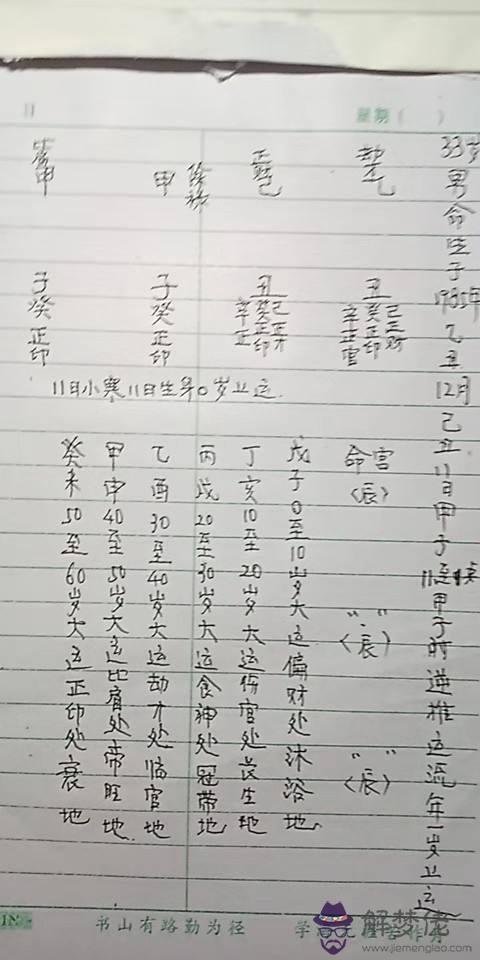 星期（ ）
33岁男命生于1985年乙丑12月己丑11日甲子11至 甲子时逆推运流年一岁上运
劫 乙
丑
辛癸己
正正正
官印财
命宫
〈辰〉
"."
〈辰〉
" "
〈辰〉
正财 己
丑
辛癸己
正正正
印才
戊子0至10岁大运偏财处沐浴地
丁亥10至20岁大运伤官处长生地
甲
子
癸
正
印
丙戌20至30岁大运食神处冠带地
乙酉30至40岁大运劫才处临官地
甲
子
癸
正
印
甲申40至50岁大运比肩处帝旺地
癸未50至60岁大运正印处衰地
11日小寒11日生算0岁上运.
书山有路勤为径
解梦佬
www.jiemenglao.com